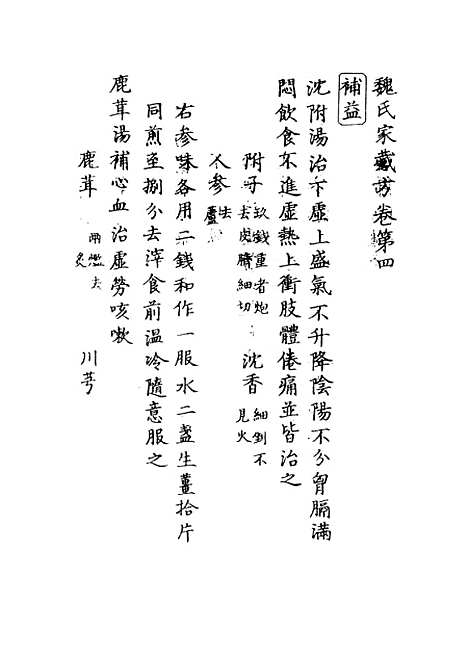 魏氏家藏方卷第四
補益
沈附湯治下虛上盛氣不升降陰陽不分胷膈滿
悶飲食不進虛熱上衝肢體倦痛並皆治之
附子 玖錢重者炮去皮臍細切 沈香 細剉不見火
人參 去蘆
右參味各用二錢和作一服水二盞生薑拾片
同煎至捌分去滓食前温冷隨意服之
鹿茸湯補心血治虛勞咳嗽
鹿茸 兩燎去炙 川芎